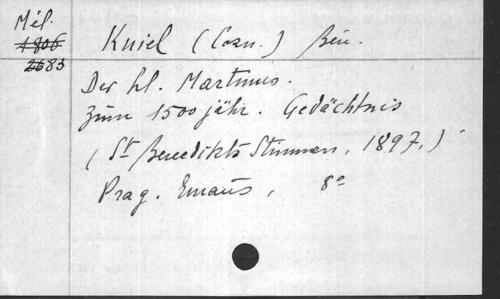 Mél.
1806
2683
Kniel (Corn.) Bén.
Der hl. Martinus.
Zum 1500jähr. Gedächtnis
(St Benedikts Stimmen, 1897,)
Prag. Emaus, 8°